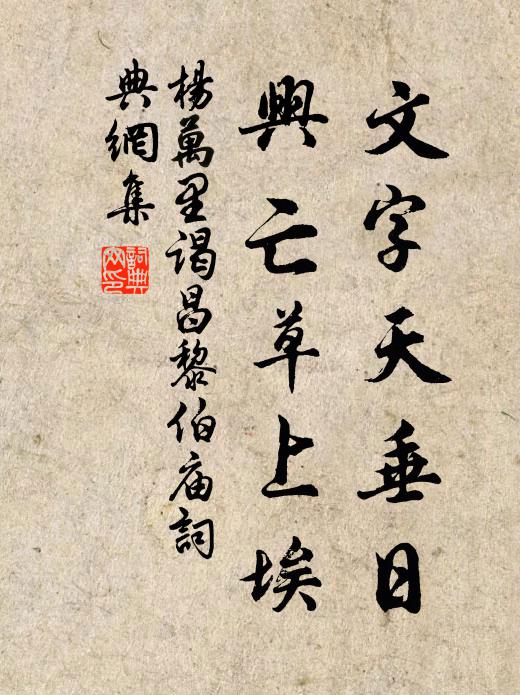 文字天垂日
興亡草上埃
楊萬里謁昌黎伯庙詞
典網集
詞典
网印